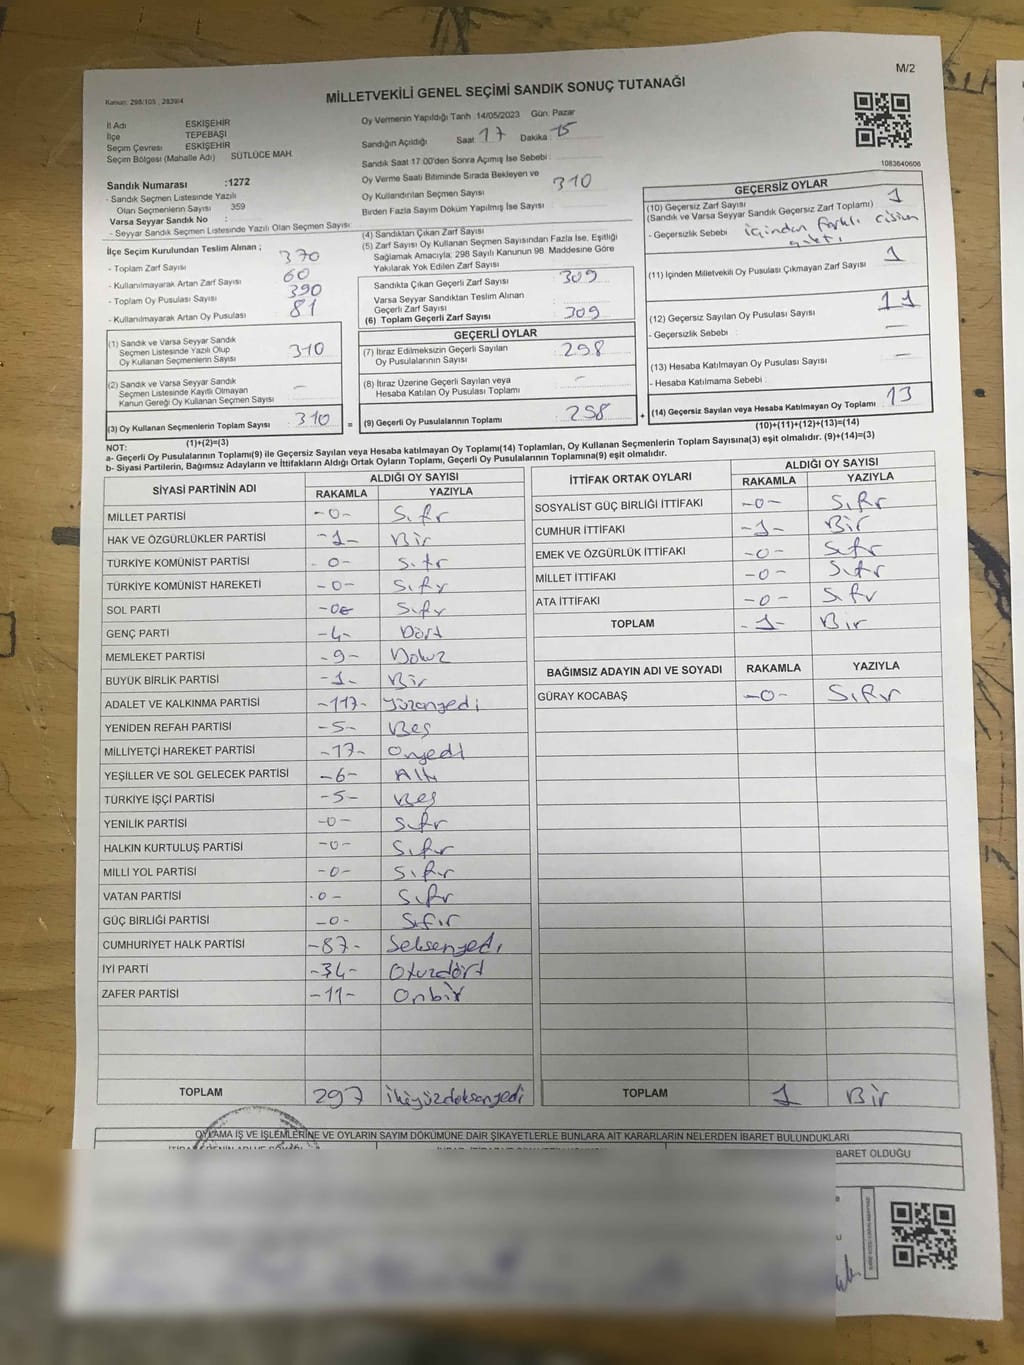 M/2
Kanun: 298/105, 2839/4
MİLLETVEKİLİ GENEL SEÇİMİ SANDIK SONUÇ TUTANAĞI
İl Adı ESKİŞEHİR
İlçe TEPEBAŞI
Seçim Çevresi ESKİŞEHİR
Seçim Bölgesi (Mahalle Adı) SÜTLÜCE MAH.
Sandık Numarası :1272
- Sandık Seçmen Listesinde Yazılı
Olan Seçmenlerin Sayısı : 359
Varsa Seyyar Sandık No :
- Seyyar Sandık Seçmen Listesinde Yazılı Olan Seçmen Sayısı:
Oy Vermenin Yapıldığı Tarih :14/05/2023 Gün: Pazar
Sandığın Açıldığı Saat 17 Dakika 15
Sandık Saat 17.00'den Sonra Açmış İse Sebebi :
Oy Verme Saati Bitiminde Sırada Bekleyen ve
Oy Kullandırılan Seçmen Sayısı 310
Birden Fazla Sayım Döküm Yapılmış İse Sayısı :
1083640606
İlçe Seçim Kurulundan Teslim Alınan ;
- Toplam Zarf Sayısı 370
- Kullanılmayarak Artan Zarf Sayısı 60
- Toplam Oy Pusulası Sayısı 390
- Kullanılmayarak Artan Oy Pusulası 81
(1) Sandık ve Varsa Seyyar Sandık
Seçmen Listesinde Yazılı Olup
Oy Kullanan Seçmenlerin Sayısı 310
(2) Sandık ve Varsa Seyyar Sandık
Seçmen Listesinde Kayıtlı Olmayan
Kanun Gereği Oy Kullanan Seçmen Sayısı –
(3) Oy Kullanan Seçmenlerin Toplam Sayısı 310
(1)+(2)=(3)
(4) Sandıktan Çıkan Zarf Sayısı
(5) Zarf Sayısı Oy Kullanan Seçmen Sayısından Fazla İse, Eşitliği
Sağlamak Amacıyla; 298 Sayılı Kanunun 98. Maddesine Göre
Yakılarak Yok Edilen Zarf Sayısı
Sandıkta Çıkan Geçerli Zarf Sayısı 309
Varsa Seyyar Sandıktan Teslim Alınan
Geçerli Zarf Sayısı :
(6) Toplam Geçerli Zarf Sayısı 309
GEÇERLİ OYLAR
(7) İtiraz Edilmeksizin Geçerli Sayılan
Oy Pusulalarının Sayısı 298
(8) İtiraz Üzerine Geçerli Sayılan veya
Hesaba Katılan Oy Pusulası Toplamı –
= (9) Geçerli Oy Pusulalarının Toplamı 298
GEÇERSİZ OYLAR
(10) Geçersiz Zarf Sayısı 1
(Sandık ve Varsa Seyyar Sandık Geçersiz Zarf Toplamı)
- Geçersizlik Sebebi içinden farklı cisim
çıktı
(11) İçinden Milletvekili Oy Pusulası Çıkmayan Zarf Sayısı 1
(12) Geçersiz Sayılan Oy Pusulası Sayısı 11
- Geçersizlik Sebebi : —
(13) Hesaba Katılmayan Oy Pusulası Sayısı —
- Hesaba Katılmama Sebebi :
+ (14) Geçersiz Sayılan veya Hesaba Katılmayan Oy Toplamı 13
(10)+(11)+(12)+(13)=(14)
NOT:
a- Geçerli Oy Pusulalarının Toplamı(9) ile Geçersiz Sayılan veya Hesaba Katılmayan oy Toplamı(14) Toplamları, Oy Kullanan Seçmenlerin Toplam Sayısına(3) eşit olmalıdır. (9)+(14)=(3)
b- Siyasi Partilerin, Bağımsız Adayların ve İttifakların Aldığı Ortak Oyların Toplamı, Geçerli Oy Pusulalarının Toplamına(9) eşit olmalıdır.
SİYASİ PARTİNİN ADI ALDIĞI OY SAYISI
RAKAMLA YAZIYLA
MİLLET PARTİSİ -0- Sıfır
HAK VE ÖZGÜRLÜKLER PARTİSİ -1- Bir
TÜRKİYE KOMÜNİST PARTİSİ -0- Sıfır
TÜRKİYE KOMÜNİST HAREKETİ -0- Sıfır
SOL PARTİ -0- Sıfır
GENÇ PARTİ -4- Dört
MEMLEKET PARTİSİ -9- Dokuz
BÜYÜK BİRLİK PARTİSİ -1- Bir
ADALET VE KALKINMA PARTİSİ -117- Yüzonyedi
YENİDEN REFAH PARTİSİ -5- Beş
MİLLİYETÇİ HAREKET PARTİSİ -17- Onyedi
YEŞİLLER VE SOL GELECEK PARTİSİ -6- Altı
TÜRKİYE İŞÇİ PARTİSİ -5- Beş
YENİLİK PARTİSİ -0- Sıfır
HALKIN KURTULUŞ PARTİSİ -0- Sıfır
MİLLİ YOL PARTİSİ -0- Sıfır
VATAN PARTİSİ -0- Sıfır
GÜÇ BİRLİĞİ PARTİSİ -0- Sıfır
CUMHURİYET HALK PARTİSİ -87- Seksenyedi
İYİ PARTİ -34- Otuzdört
ZAFER PARTİSİ -11- Onbir
TOPLAM 297 ikiyüzdoksanyedi
İTTİFAK ORTAK OYLARI ALDIĞI OY SAYISI
RAKAMLA YAZIYLA
SOSYALİST GÜÇ BİRLİĞİ İTTİFAKI -0- Sıfır
CUMHUR İTTİFAKI -1- Bir
EMEK VE ÖZGÜRLÜK İTTİFAKI -0- Sıfır
MİLLET İTTİFAKI -0- Sıfır
ATA İTTİFAKI -0- Sıfır
TOPLAM -1- Bir
BAĞIMSIZ ADAYIN ADI VE SOYADI RAKAMLA YAZIYLA
GÜRAY KOCABAŞ -0- Sıfır
TOPLAM 1 Bir
OYLAMA İŞ VE İŞLEMLERİNE VE OYLARIN SAYIM DÖKÜMÜNE DAİR ŞİKAYETLERLE BUNLARA AİT KARARLARIN NELERDEN İBARET BULUNDUKLARI
BARET OLDUĞU